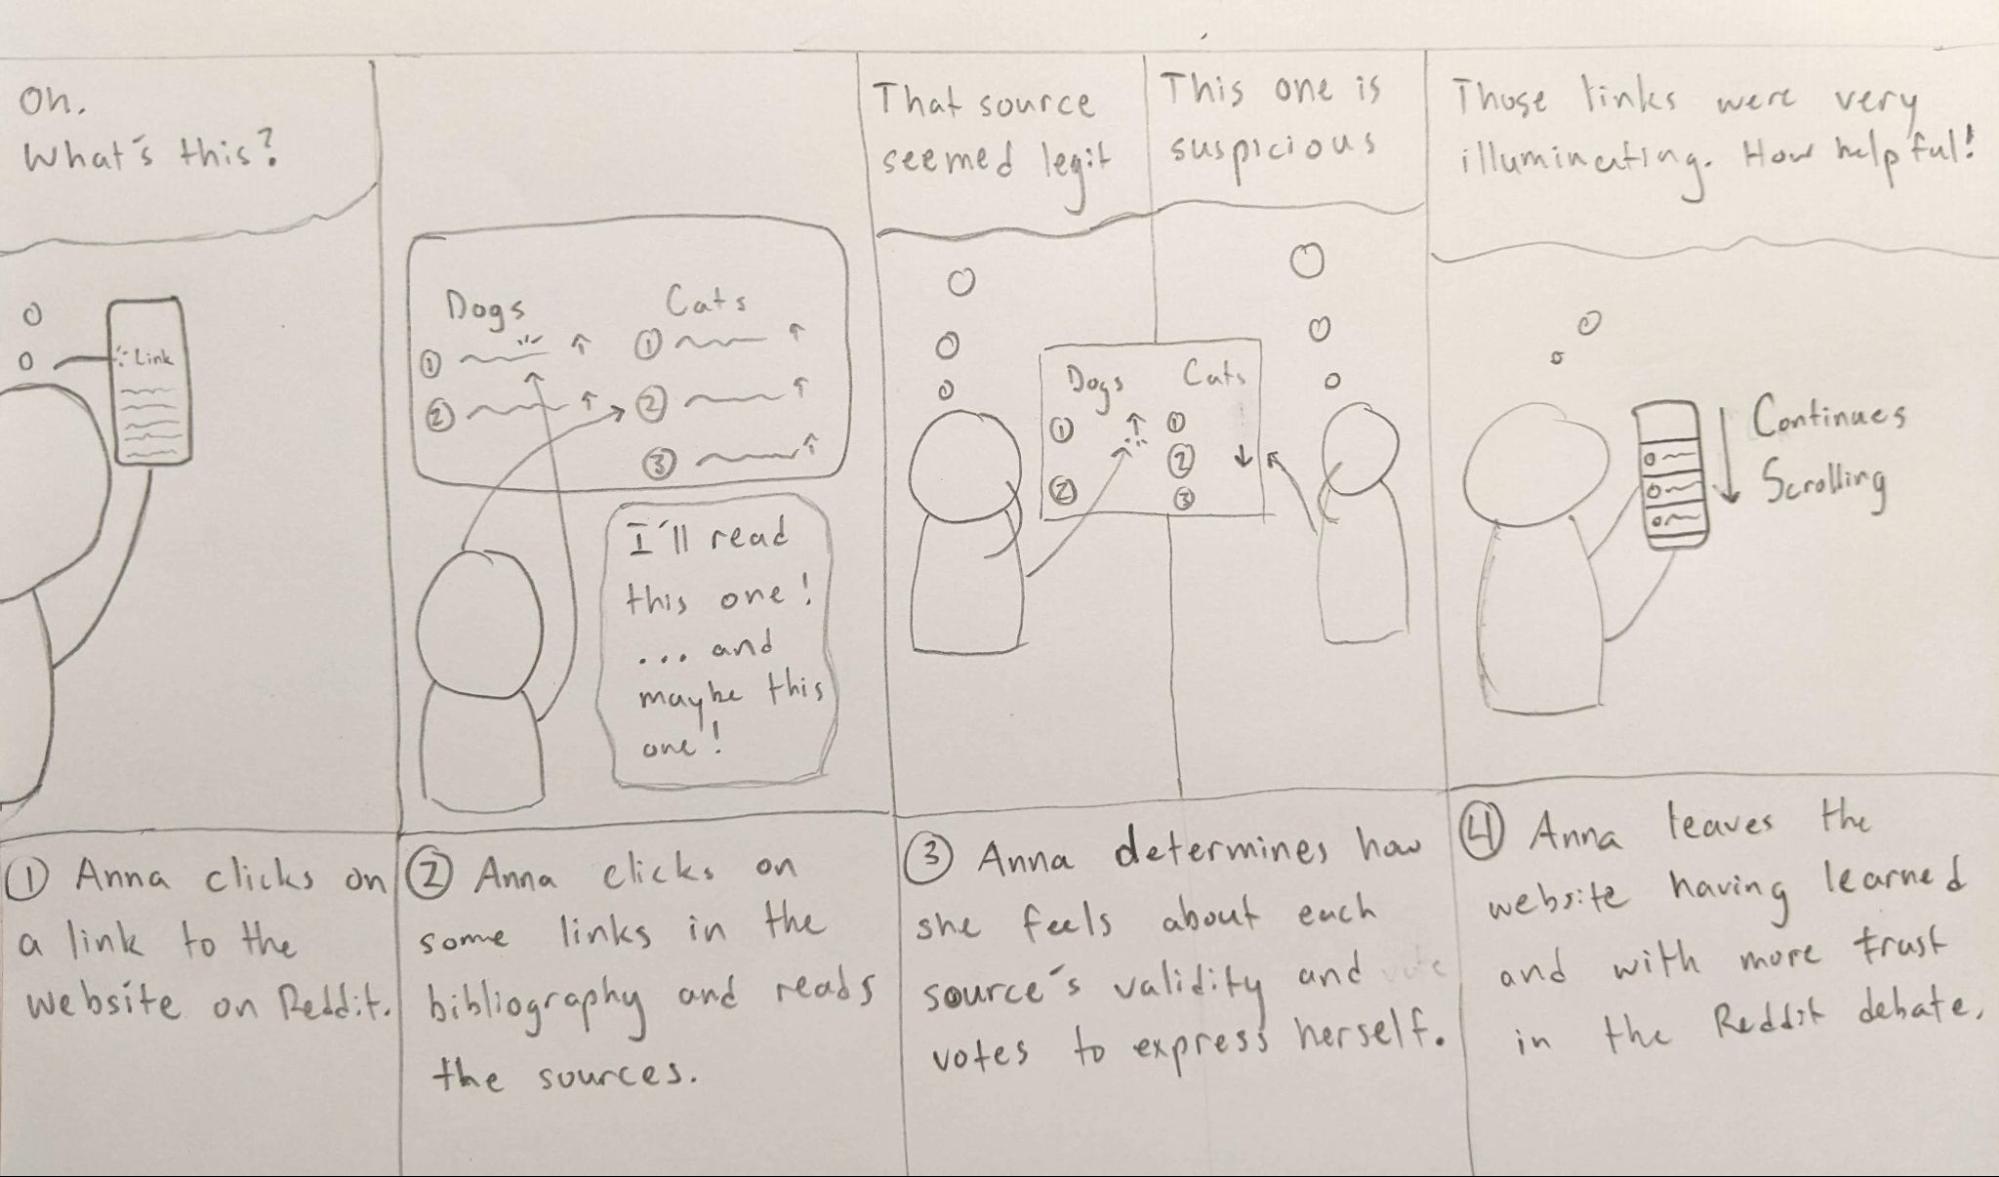 Oh.
What's this?
Link
① Anna clicks on
a link to the
website on Reddit.
Dogs
①
②
Cats
①
②
③
I'll read
this one!
... and
maybe this
one!
② Anna clicks on
some links in the
bibliography and reads
the sources.
That source
seemed legit
This one is
suspicious
Dogs
①
②
Cats
①
②
③
③ Anna determines how
she feels about each
source's validity and vote
votes to express herself.
Those links were very
illuminating. How helpful!
Continues
Scrolling
④ Anna leaves the
website having learned
and with more trust
in the Reddit debate.